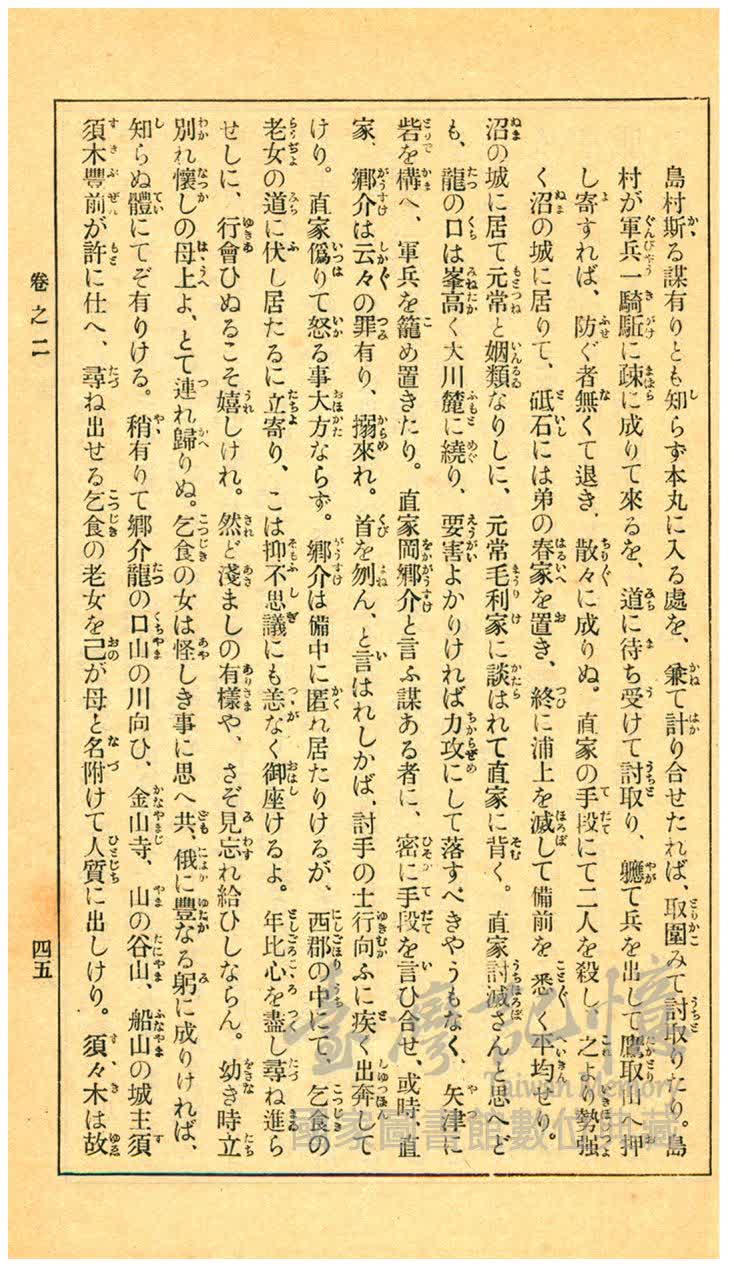 島村斯る謀有りとも知らず本丸に入る處を、兼て計り合せたれば、取圍みて討取りたり。島
村が軍兵一騎駈に疎に成りて來るを、道に待ち受けて討取り、軈て兵を出して鷹取山へ押
し寄すれば、防ぐ者無くて退き、散々に成りぬ。直家の手段にて二人を殺し、之より勢强
く沼の城に居りて、砥石には弟の春家を置き、終に浦上を滅して備前を悉く平均せり。
沼の城に居て元常と姻類なりしに、元常毛利家に談はれて直家に背く。直家討滅さんと思へど
も、龍の口は峯高く大川麓に繞り、要害よかりければ力攻にして落すべきやうもなく、矢津に
砦を構へ、軍兵を籠め置きたり。直家岡鄕介と言ふ謀ある者に、密に手段を言ひ合せ、或時、直
家、鄕介は云々の罪有り、搦來れ。首を刎ん、と言はれしかば、討手の士行向ふに疾く出奔して
けり。直家僞りて怒る事大方ならず。鄕介は備中に匿れ居たりけるが、西郡の中にて、乞食の
老女の道に伏し居たるに立寄り、こは抑不思議にも恙なく御座けるよ。年比心を盡し尋ね進ら
せしに、行會ひぬるこそ嬉しけれ。然ど淺ましの有樣や、さぞ見忘れ給ひしならん。幼き時立
別れ懷しの母上よ、とて連れ歸りぬ。乞食の女は怪しき事に思へ共、俄に豐なる躬に成りければ、
知らぬ體にてぞ有りける。稍有りて鄕介龍の口山の川向ひ、金山寺、山の谷山、船山の城主須
須木豐前が許に仕へ、尋ね出せる乞食の老女を己が母と名附けて人質に出しけり。須々木は故
卷之二
四五
臺灣記憶
Taiwan Memory
國家圖書館數位典藏